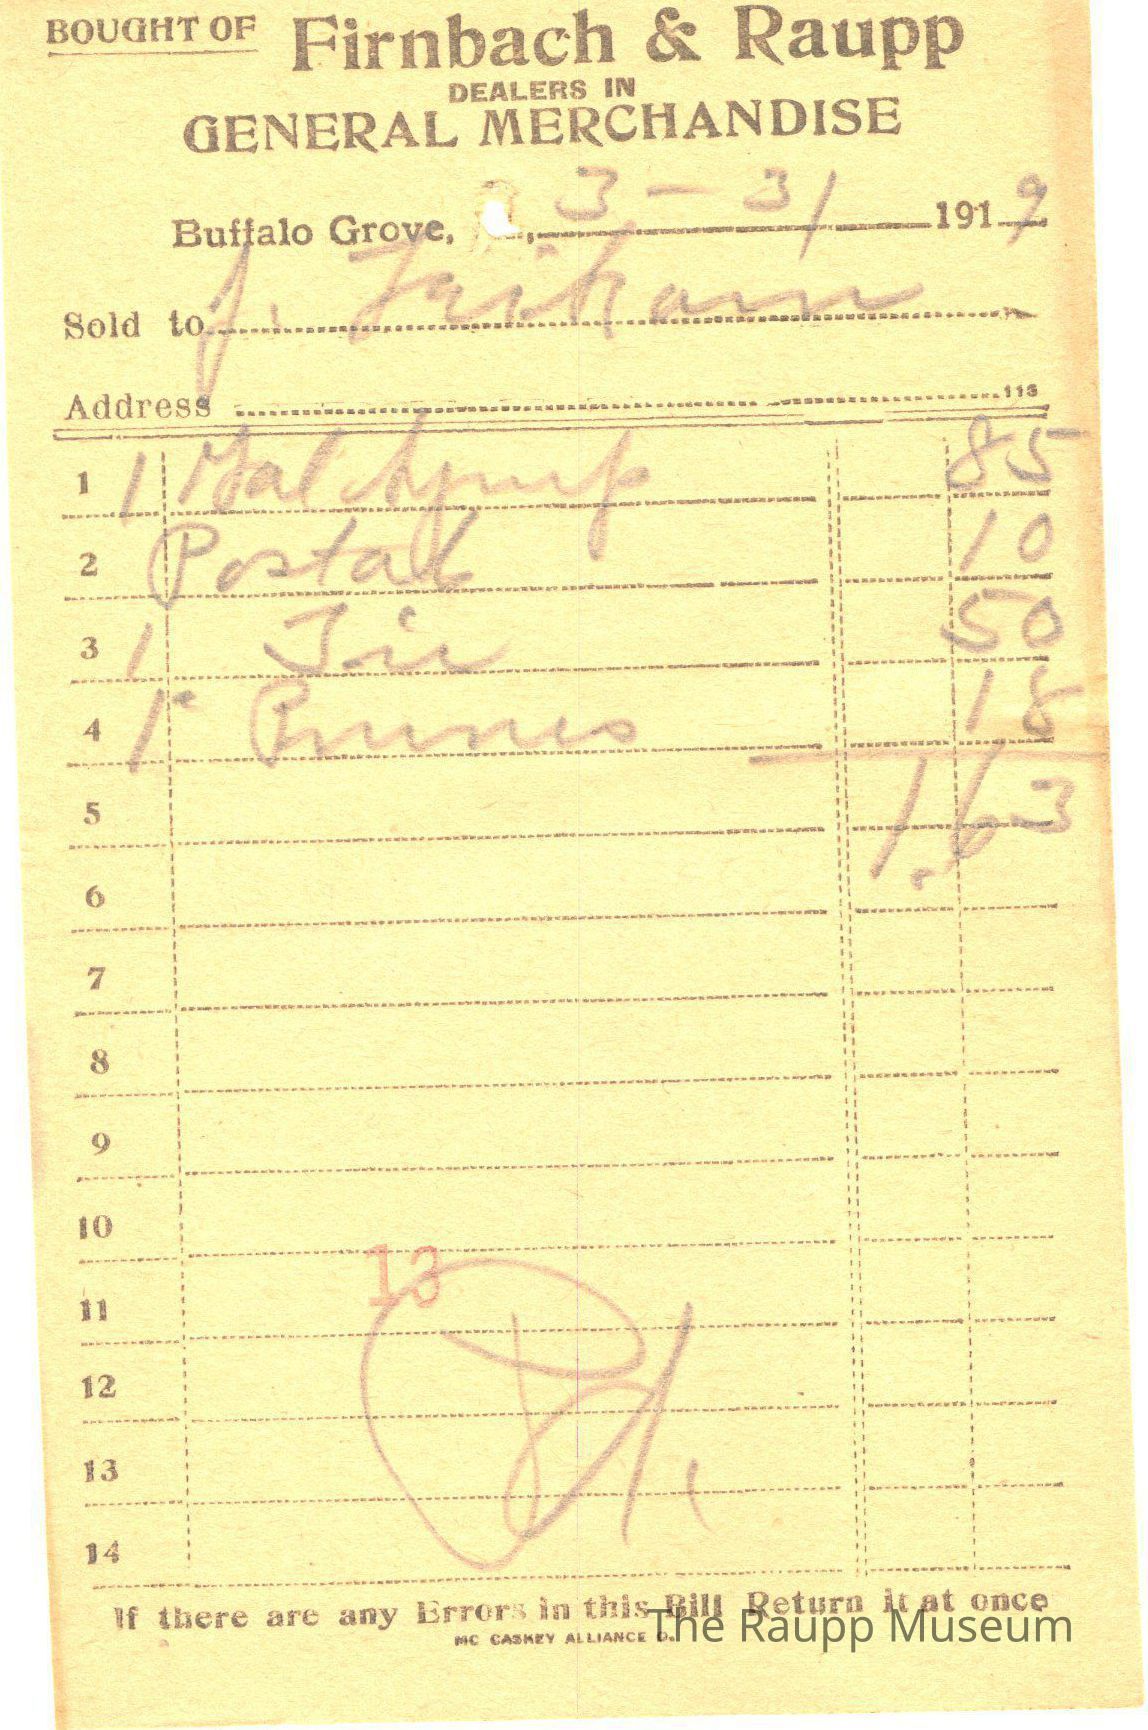 BOUGHT OF Firnbach & Raupp
DEALERS IN
GENERAL MERCHANDISE
Buffalo Grove, 3-31 1919
Sold to J.
Address 113
1 1 Gal Syrup 85
2 Postal 10
3 1 50
4 1 Prunes 18
5 1.63
6
7
8
9
10
13
11
12
13
14
If there are any Errors in this Bill Return it at once
MC CASKEY ALLIANCE O.
The Raupp Museum